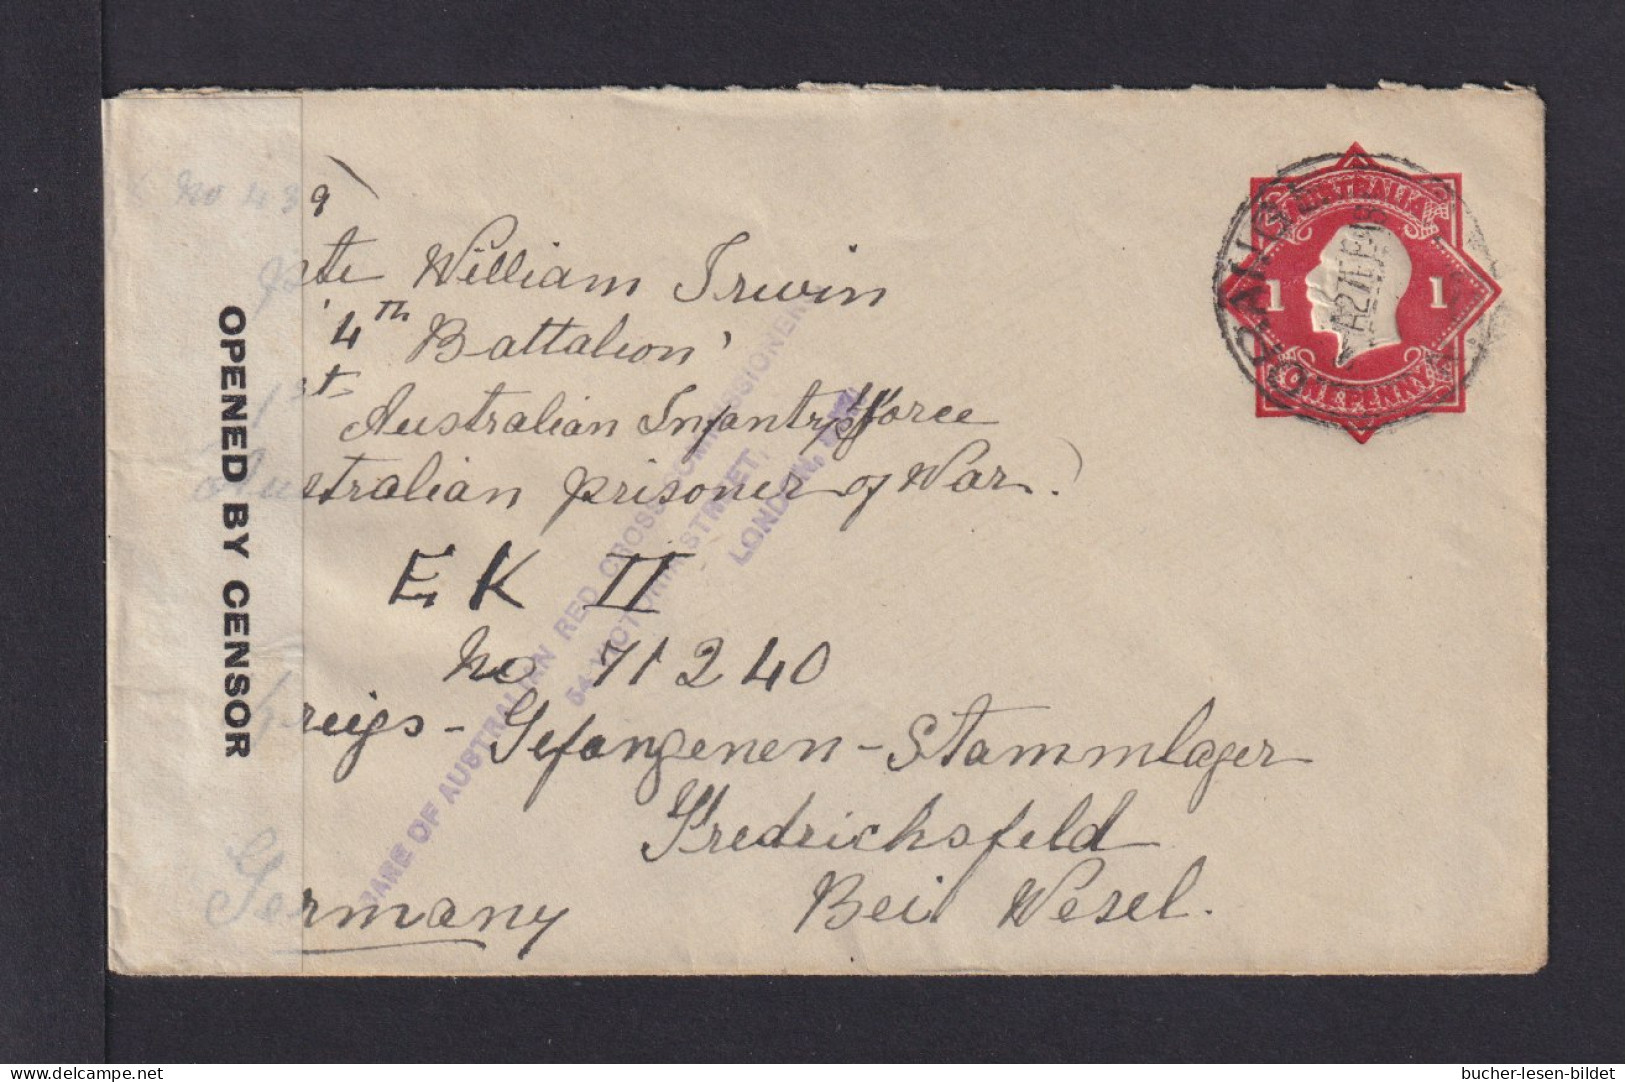 No 439
Pte William Irwin
'4th Battalion'
1st
Australian Infantry Force
Australian prisoner of War.)
E K II
No 71240
Kreigs-Gefangenen-Stammlager
Fredrichsfeld
Bei Wesel.
Germany
OPENED BY CENSOR
CARE OF AUSTRALIAN RED CROSS COMMISSIONERS
54 VICTORIA STREET,
LONDON,
ORANGE
AUSTRALIA
1 1
ONE PENNY
bucher-lesen-bildet